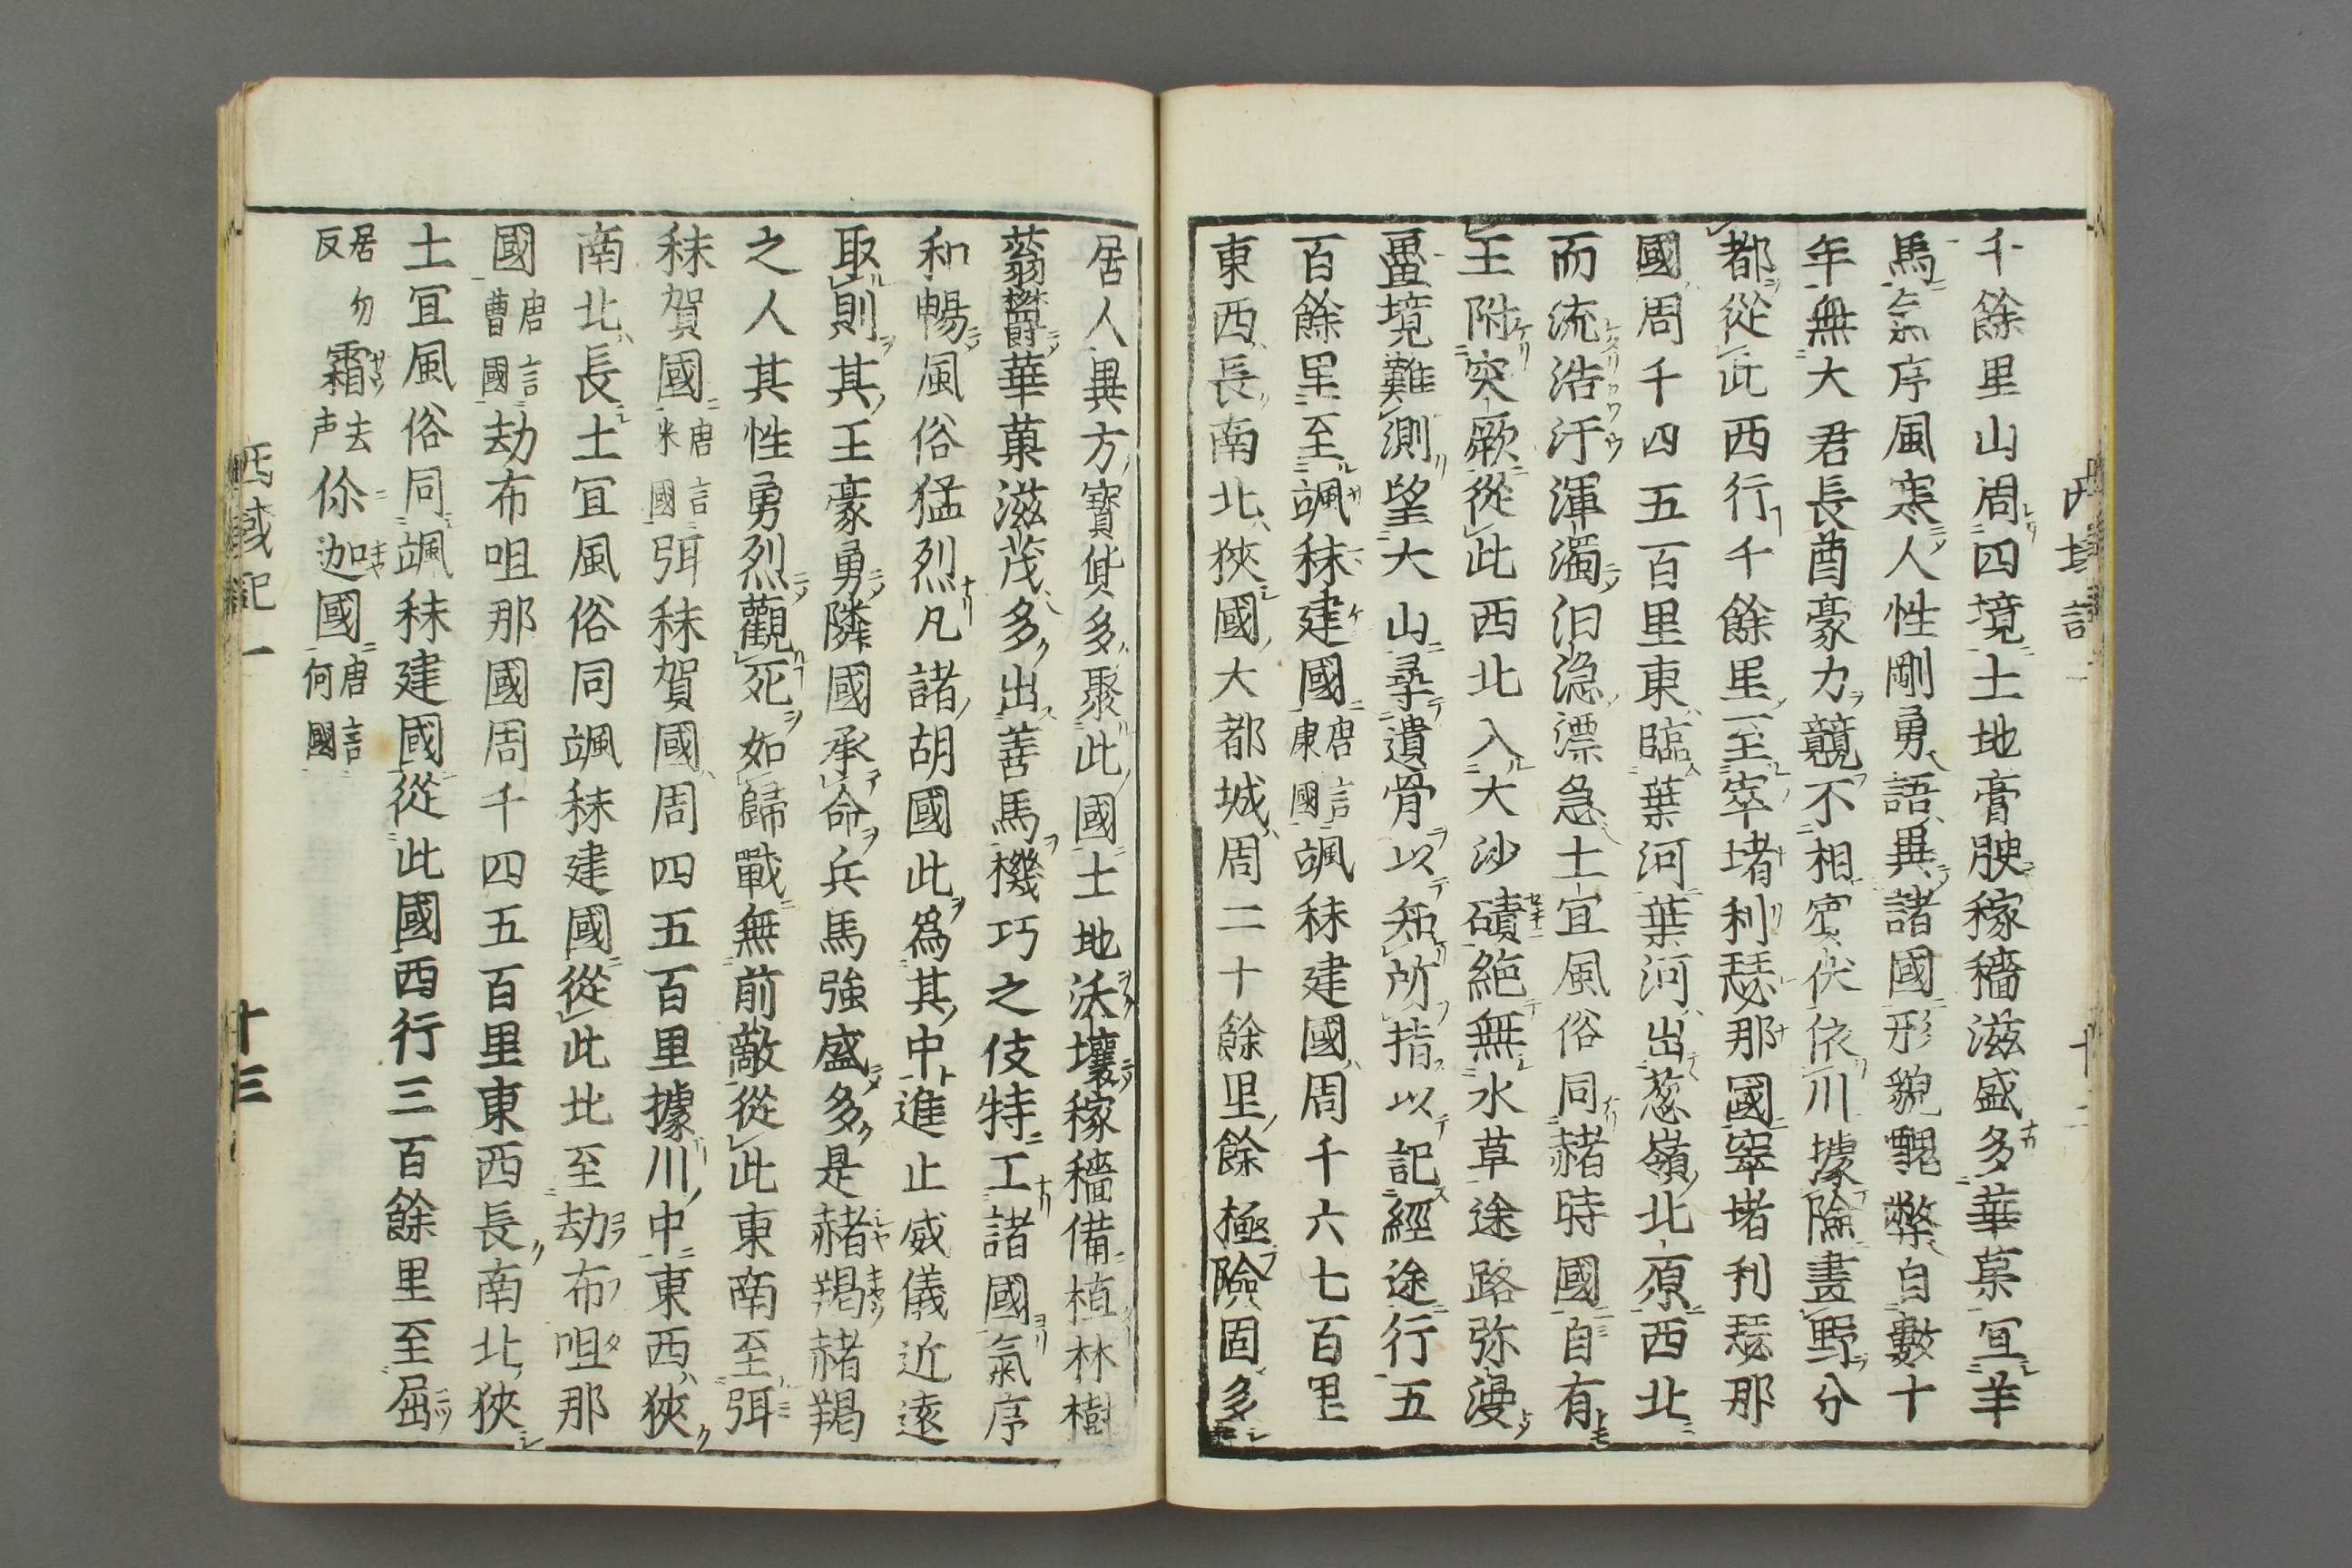 千餘里山周四境土地膏腴稼穡滋盛多華菓宜羊
馬氣序風寒人性剛勇語異諸國形貌醜弊自數十
年無大君長酋豪力競不相賓伏依川據險畫野分
都從此西行千餘里至窣堵利瑟那國窣堵利瑟那
國周千四五百里東臨葉河葉河出葱嶺北原西北
而流浩汗渾濁汩淴漂急土宜風俗同赭時國自有
王附突厥從此西北入大沙磧絶無水草途路弥漫
畺境難測望大山尋遺骨以知所指以記經途行五
百餘里至颯秣建國唐言康國颯秣建國周千六七百里
東西長南北狹國大都城周二十餘里餘極險固多
居人異方寳貨多聚此國土地沃壤稼穡備植林樹
蓊欝華菓滋茂多出善馬機巧之伎特工諸國氣序
和暢風俗猛烈凡諸胡國此爲其中進止威儀近遠
取則其王豪勇隣國承命兵馬強盛多是赭羯赭羯
之人其性勇烈觀死如歸戰無前敵從此東南至弭
秣賀國唐言米國弭秣賀國周四五百里據川中東西狹
南北長土宜風俗同颯秣建國從此北至劫布咀那
國唐言曹國劫布咀那國周千四五百里東西長南北狹
土宜風俗同颯秣建國從此國西行三百餘里至屈
居勿反霜去声伱迦國唐言何國
西域記一
十三